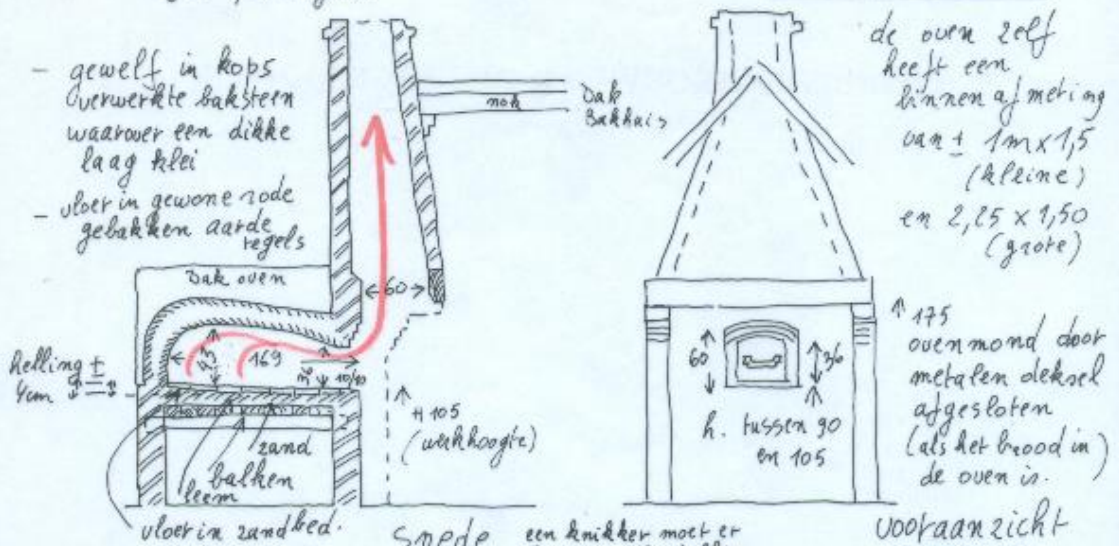 - gewelf in kops
verwerkte baksteen
waarover een dikke
laag klei
- vloer in gewone rode
gebakken aarde
tegels
Dak oven
helling ±
4cm
43
169
36
10/10
60
nok
Dak
Bakhuis
H 105
(werkhoogte)
zand
balken
leem
vloer in zandbed.
Snede
een knikker moet er
de oven zelf
heeft een
binnen afmeting
van ± 1m x 1,5
(kleine)
en 2,25 x 1,50
(grote)
60
36
h. tussen 90
en 105
175
ovenmond door
metalen deksel
afgesloten
(als het brood in
de oven is.)
vooraanzicht